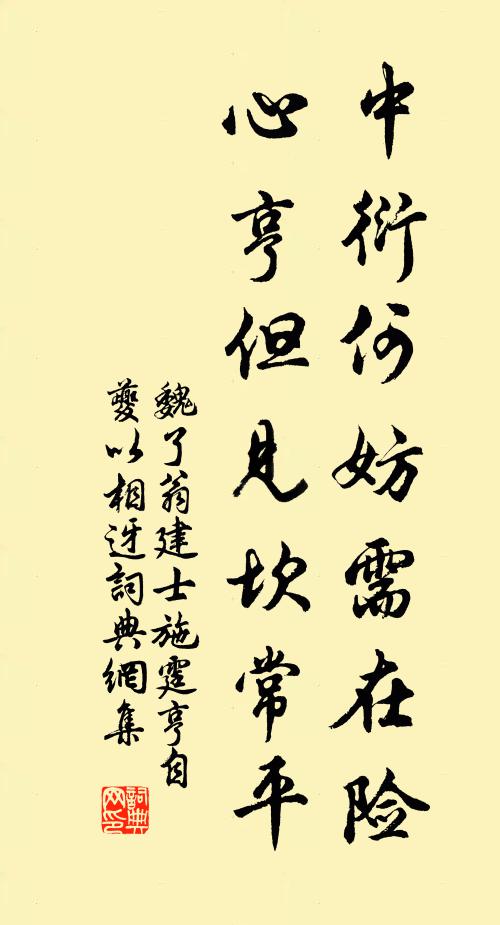 中衍何妨需在险
心亨但見坎常平
魏了翁建士施霆亨自
夔以相迓詞典網集
詞典网印